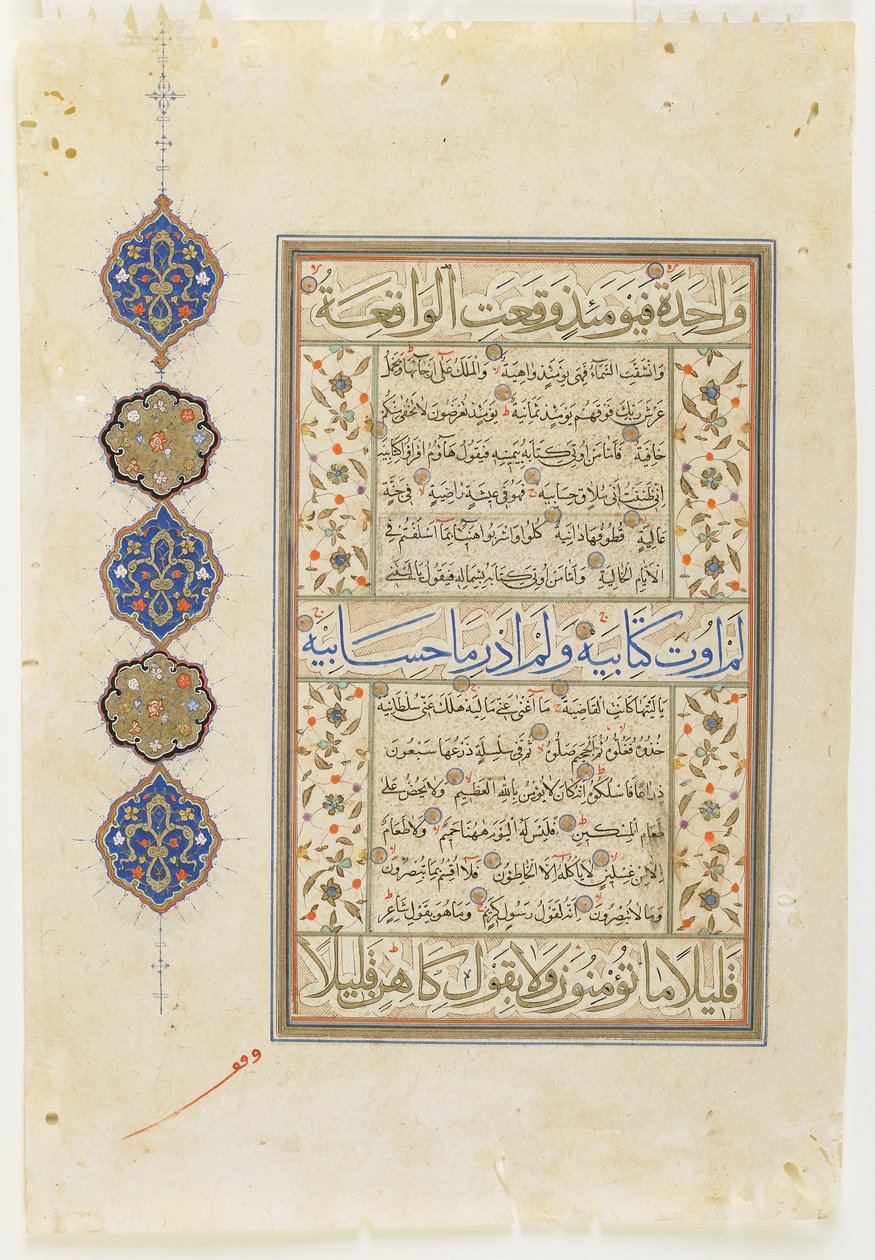 وَاحِدَةً فَيَوْمَئِذٍ وَقَعَتِ الْوَاقِعَةُ
وَانْشَقَّتِ السَّمَاءُ فَهِيَ يَوْمَئِذٍ وَاهِيَةٌ وَالْمَلَكُ عَلَى اَرْجَائِهَا وَيَحْمِلُ
عَرْشَ رَبِّكَ فَوْقَهُمْ يَوْمَئِذٍ ثَمَانِيَةٌ يَوْمَئِذٍ تُعْرَضُونَ لَا تَخْفَى مِنْكُمْ
خَافِيَةٌ فَاَمَّا مَنْ اُوتِيَ كِتَابَهُ بِيَمِينِهِ فَيَقُولُ هَاؤُمُ اقْرَؤُا كِتَابِيَهْ
اِنِّي ظَنَنْتُ اَنِّي مُلَاقٍ حِسَابِيَهْ فَهُوَ فِي عِيشَةٍ رَاضِيَةٍ فِي جَنَّةٍ
عَالِيَةٍ قُطُوفُهَا دَانِيَةٌ كُلُوا وَاشْرَبُوا هَنِيئًا بِمَا اَسْلَفْتُمْ فِي
الْاَيَّامِ الْخَالِيَةِ وَاَمَّا مَنْ اُوتِيَ كِتَابَهُ بِشِمَالِهِ فَيَقُولُ يَا لَيْتَنِي
لَمْ اُوتَ كِتَابِيَهْ وَلَمْ اَدْرِ مَا حِسَابِيَهْ
يَا لَيْتَهَا كَانَتِ الْقَاضِيَةَ مَا اَغْنَى عَنِّي مَالِيَهْ هَلَكَ عَنِّي سُلْطَانِيَهْ
خُذُوهُ فَغُلُّوهُ ثُمَّ الْجَحِيمَ صَلُّوهُ ثُمَّ فِي سِلْسِلَةٍ ذَرْعُهَا سَبْعُونَ
ذِرَاعًا فَاسْلُكُوهُ اِنَّهُ كَانَ لَا يُؤْمِنُ بِاللّٰهِ الْعَظِيمِ وَلَا يَحُضُّ عَلَى
طَعَامِ الْمِسْكِينِ فَلَيْسَ لَهُ الْيَوْمَ هَهُنَا حَمِيمٌ وَلَا طَعَامٌ
اِلَّا مِنْ غِسْلِينٍ لَا يَاْكُلُهُ اِلَّا الْخَاطِئُونَ فَلَا اُقْسِمُ بِمَا تُبْصِرُونَ
وَمَا لَا تُبْصِرُونَ اِنَّهُ لَقَوْلُ رَسُولٍ كَرِيمٍ وَمَا هُوَ بِقَوْلِ شَاعِرٍ
قَلِيلًا مَا تُؤْمِنُونَ وَلَا بِقَوْلِ كَاهِنٍ قَلِيلًا
وقف